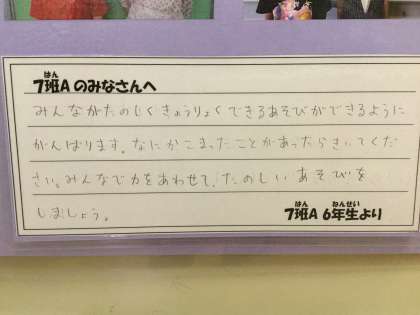 7班Aのみなさんへ
みんながたのしくきょうりょくできるあそびができるように
がんばります。なにかこまったことがあったらきいてくだ
さい。みんなで力をあわせて、たのしいあそびを
しましょう。
7班A 6年生より